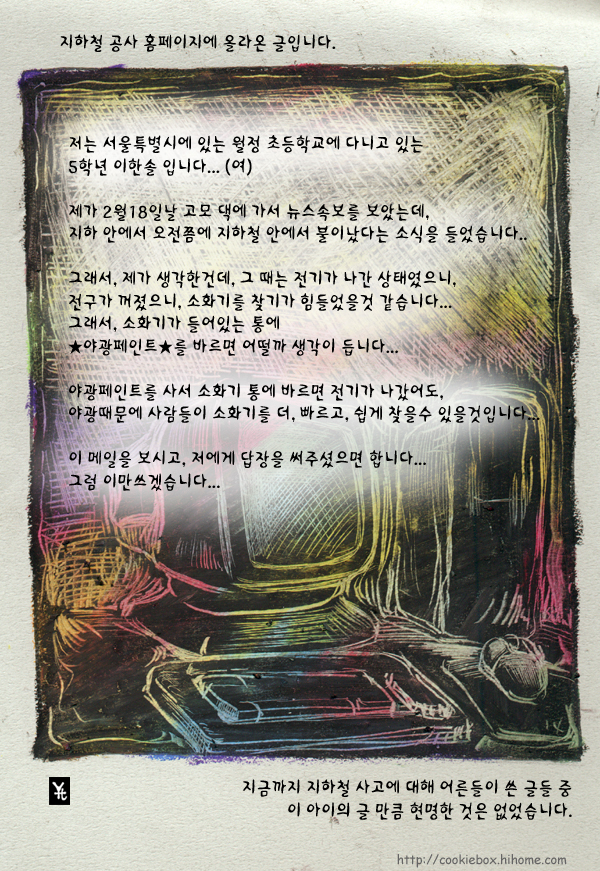 지하철 공사 홈페이지에 올라온 글입니다.
저는 서울특별시에 있는 월정 초등학교에 다니고 있는
5학년 이한솔 입니다... (여)
제가 2월18일날 고모 댁에 가서 뉴스속보를 보았는데,
지하 안에서 오전쯤에 지하철 안에서 불이났다는 소식을 들었습니다..
그래서, 제가 생각한건데, 그 때는 전기가 나간 상태였으니,
전구가 꺼졌으니, 소화기를 찾기가 힘들었을것 같습니다...
그래서, 소화기가 들어있는 통에
★야광페인트★를 바르면 어떨까 생각이 듭니다...
야광페인트를 사서 소화기 통에 바르면 전기가 나갔어도,
야광때문에 사람들이 소화기를 더, 빠르고, 쉽게 찾을수 있을것입니다...
이 메일을 보시고, 저에게 답장을 써주셨으면 합니다...
그럼 이만쓰겠습니다...
지금까지 지하철 사고에 대해 어른들이 쓴 글들 중
이 아이의 글 만큼 현명한 것은 없었습니다.
http://cookiebox.hihome.com